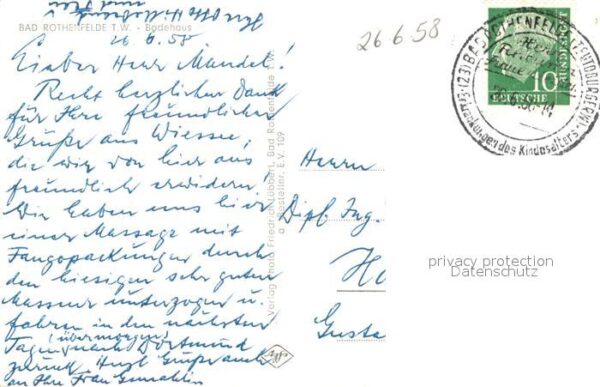 Ihr Otto
und Frau
BAD ROTHENFELDE T.W. - Badehaus
26.6.58
Lieber Herr Mandel!
Recht herzlichen Dank
für Ihre freundlichen
Grüße aus Wiessee,
die wir von hier aus
freundlich erwidern!
Wir haben uns hier
einer Massage mit
Fangopackungen durch
den hiesigen sehr guten
Masseur unterzogen u.
fahren in den nächsten
(übermorgen)
Tagen nach Dortmund
zurück. Herzl. Grüße auch
an Ihre Frau Gemahlin
Verlag Photo Friedrich Lübbert, Bad Rothenfelde T.W.
Bestellnr. E.V. 109
26.6.58
(23) BAD ROTHENFELDE (TEUTOBURGERW.)
Erkrankungen des Kindesalters
10
DEUTSCHE
BUNDESPOST
Herrn
Dipl. Ing.
Ha
Gusta
privacy protection
Datenschutz